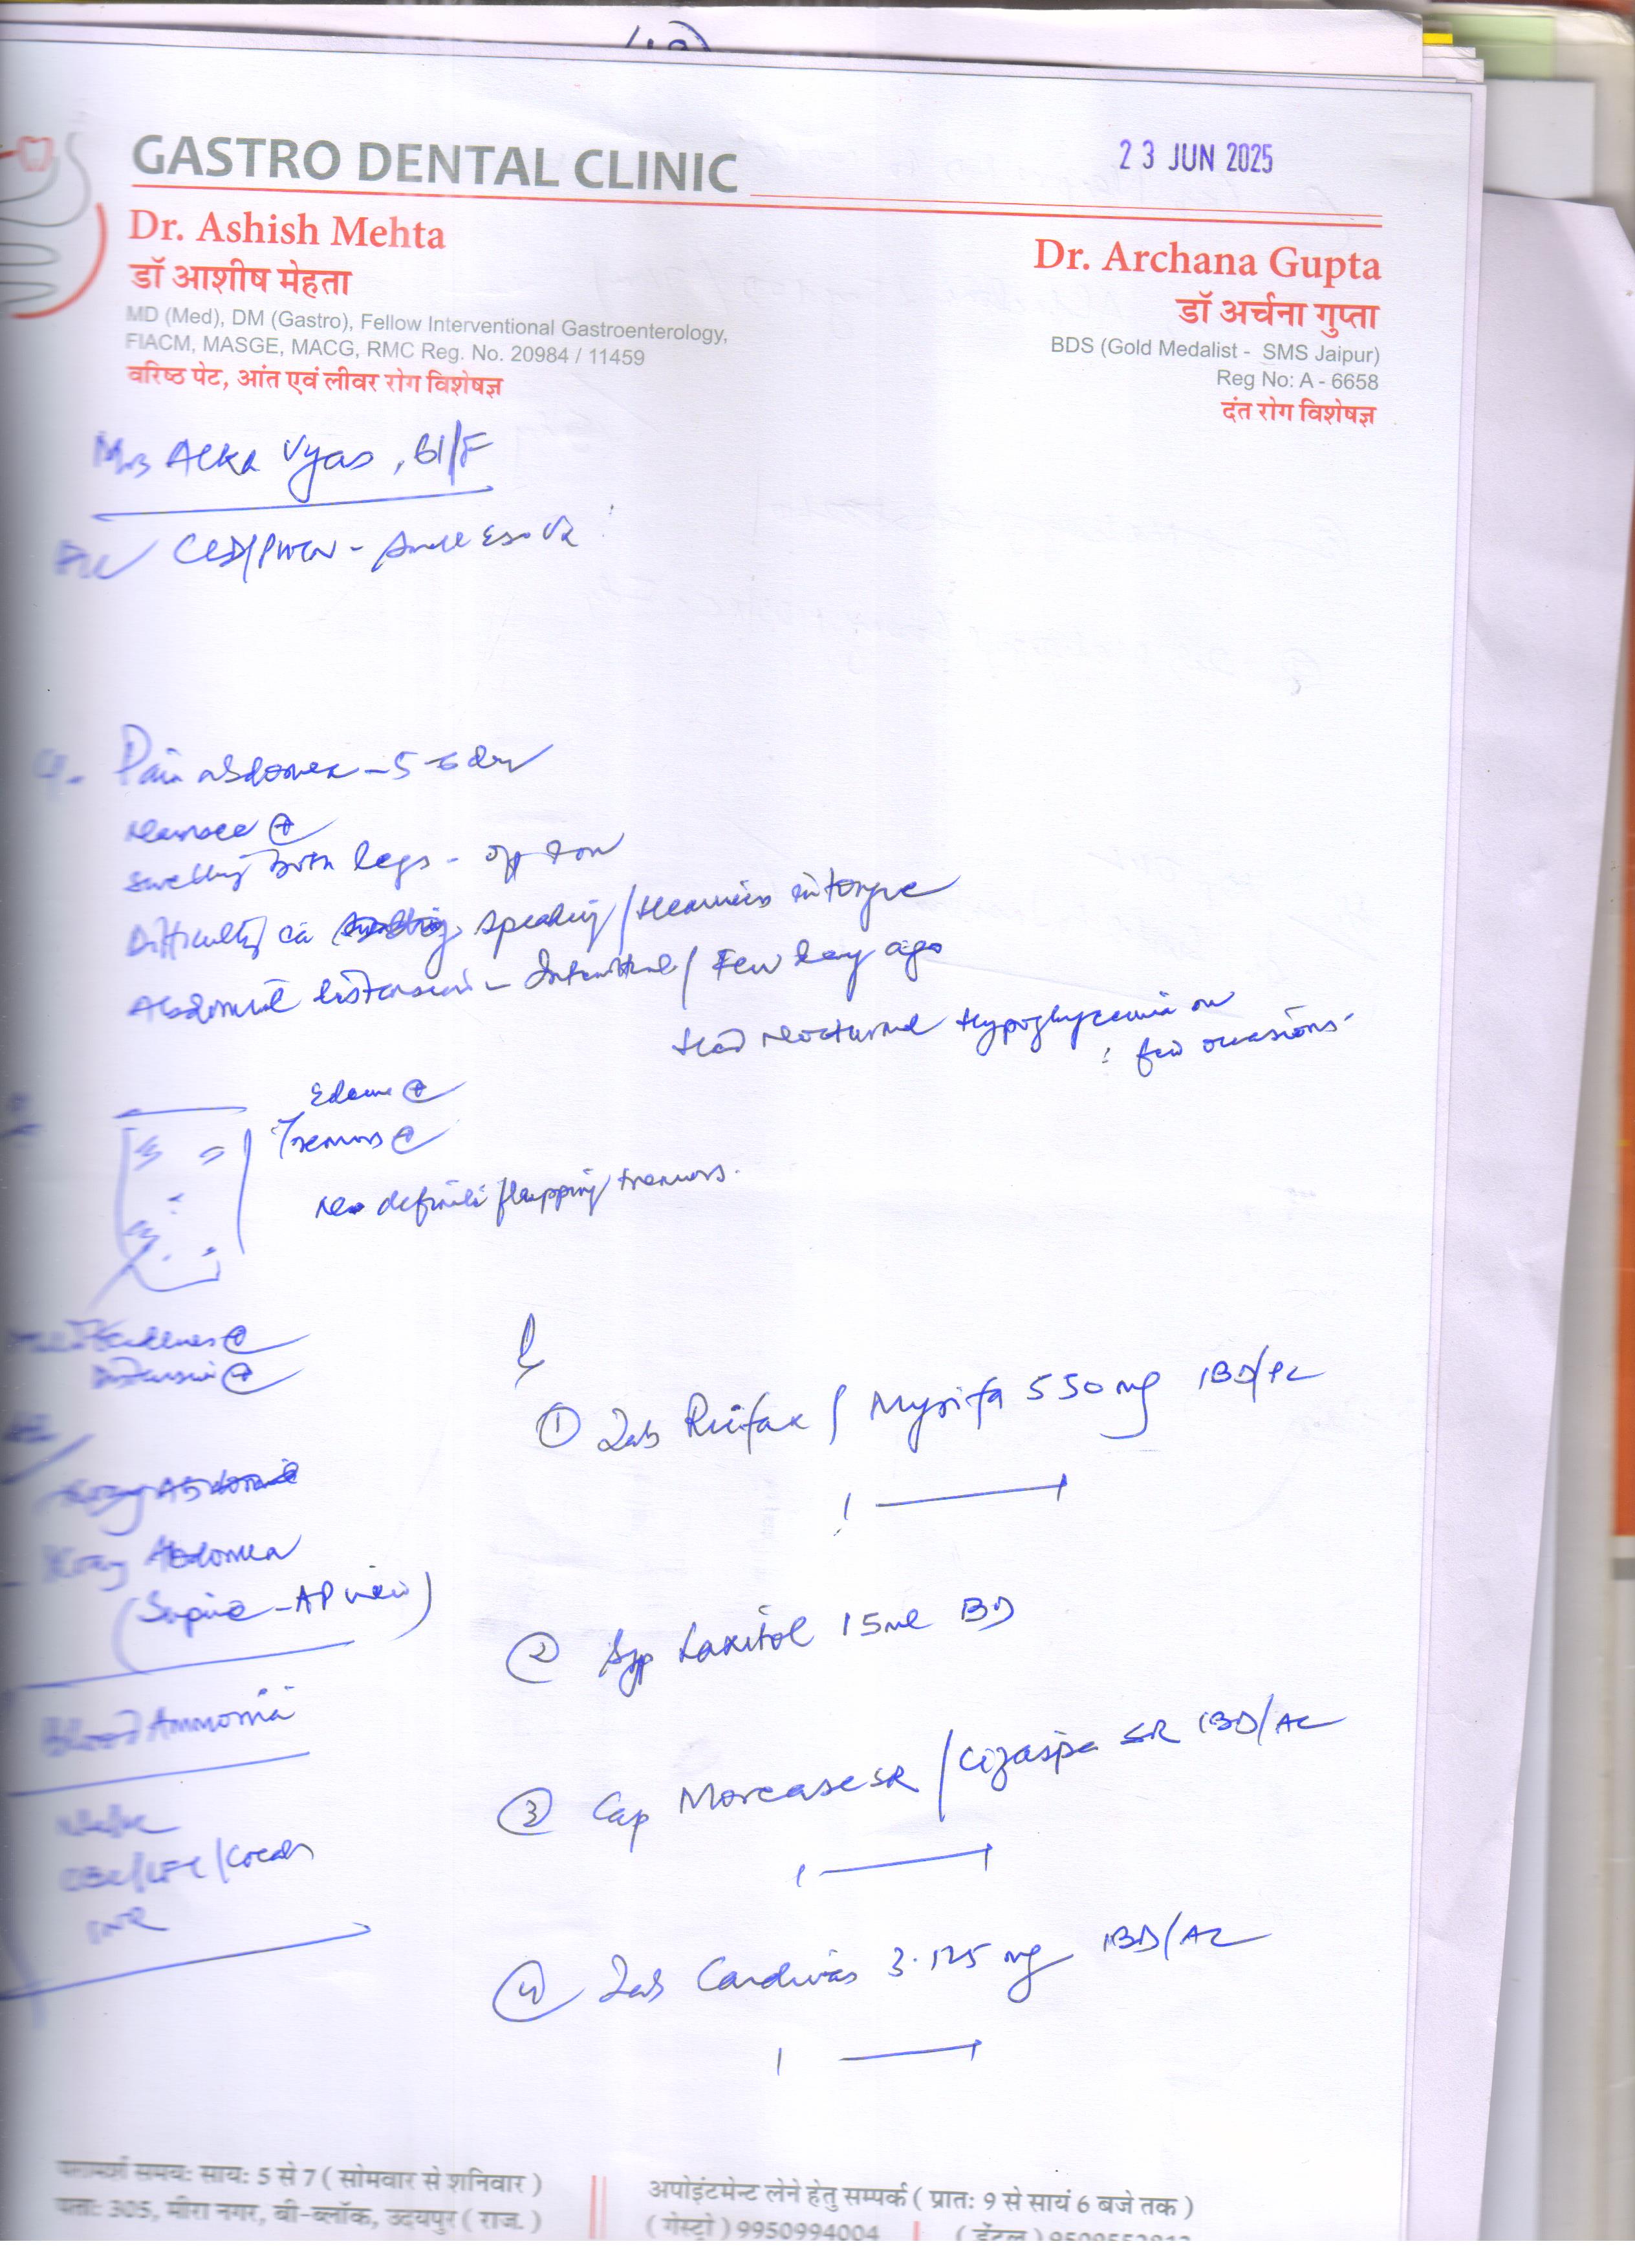 GASTRO DENTAL CLINIC
23 JUN 2025
Dr. Ashish Mehta
डॉ आशीष मेहता
MD (Med), DM (Gastro), Fellow Interventional Gastroenterology,
FIACM, MASGE, MACG, RMC Reg. No. 20984 / 11459
वरिष्ठ पेट, आंत एवं लीवर रोग विशेषज्ञ
Dr. Archana Gupta
डॉ अर्चना गुप्ता
BDS (Gold Medalist - SMS Jaipur)
Reg No: A - 6658
दंत रोग विशेषज्ञ
Mrs Alka Vyas, 61/F
CLD/PHTN - Small Eso Vx
Pain abdomen - 5-6 day
Nausea +
Swelling both legs - off & on
Difficulty in speaking / heaviness in tongue
Abdominal distension - / Few day ago
Had Nocturnal Hypoglycemia on
few occasions.
Edema +
Tremors +
No definite flapping tremors.
Tenderness +
Distension +
Xray Abdomen
(Supine - AP view)
Blood Ammonia
CBC/LFT/Creat
INR
① Tab Rcifax / Myrifa 550 mg 1BD/PC
② Syp Laxitol 15ml BD
③ Cap Morease SR / Cizaspa SR 1BD/AC
④ Tab Cardivas 3.125 mg 1BD/AC
परामर्श समय: साय: 5 से 7 ( सोमवार से शनिवार )
पता: 305, मीरा नगर, बी-ब्लॉक, उदयपुर ( राज. )
अपोइंटमेन्ट लेने हेतु सम्पर्क ( प्रात: 9 से सायं 6 बजे तक )
( गेस्ट्रो ) 9950994004
( डेंटल )